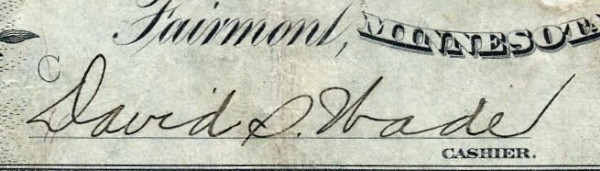 Fairmont, MINNESOTA
C
David S. Wade
CASHIER.